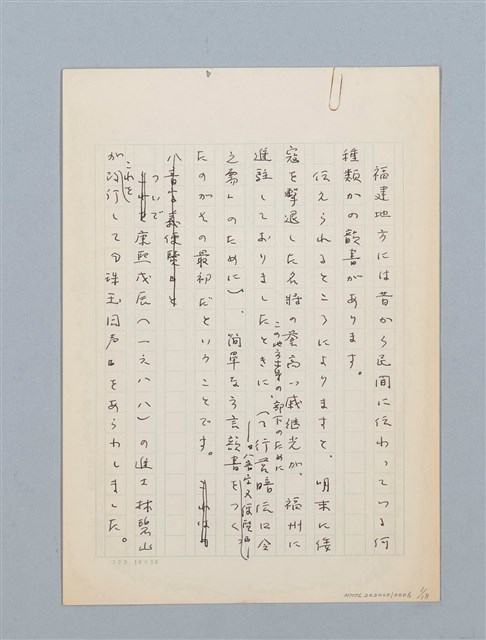 福建地方には昔から民間に伝わっている何
種類かの韻書があります。
伝えられるところによりますと、明末に倭
寇を撃退した名将の誉高い戚継光が、福州に
この地方出身の部下のために
進駐しておりましたときに、(「行営暗伝口令
之需」のために)、簡単な方言韻書をつく
たのがその最初だということです。これは
八音字義便覧』と
ついで
康熙戊辰(一六八八)の進士林碧山
これを
が改行して『珠玉同声』をあらわしました。